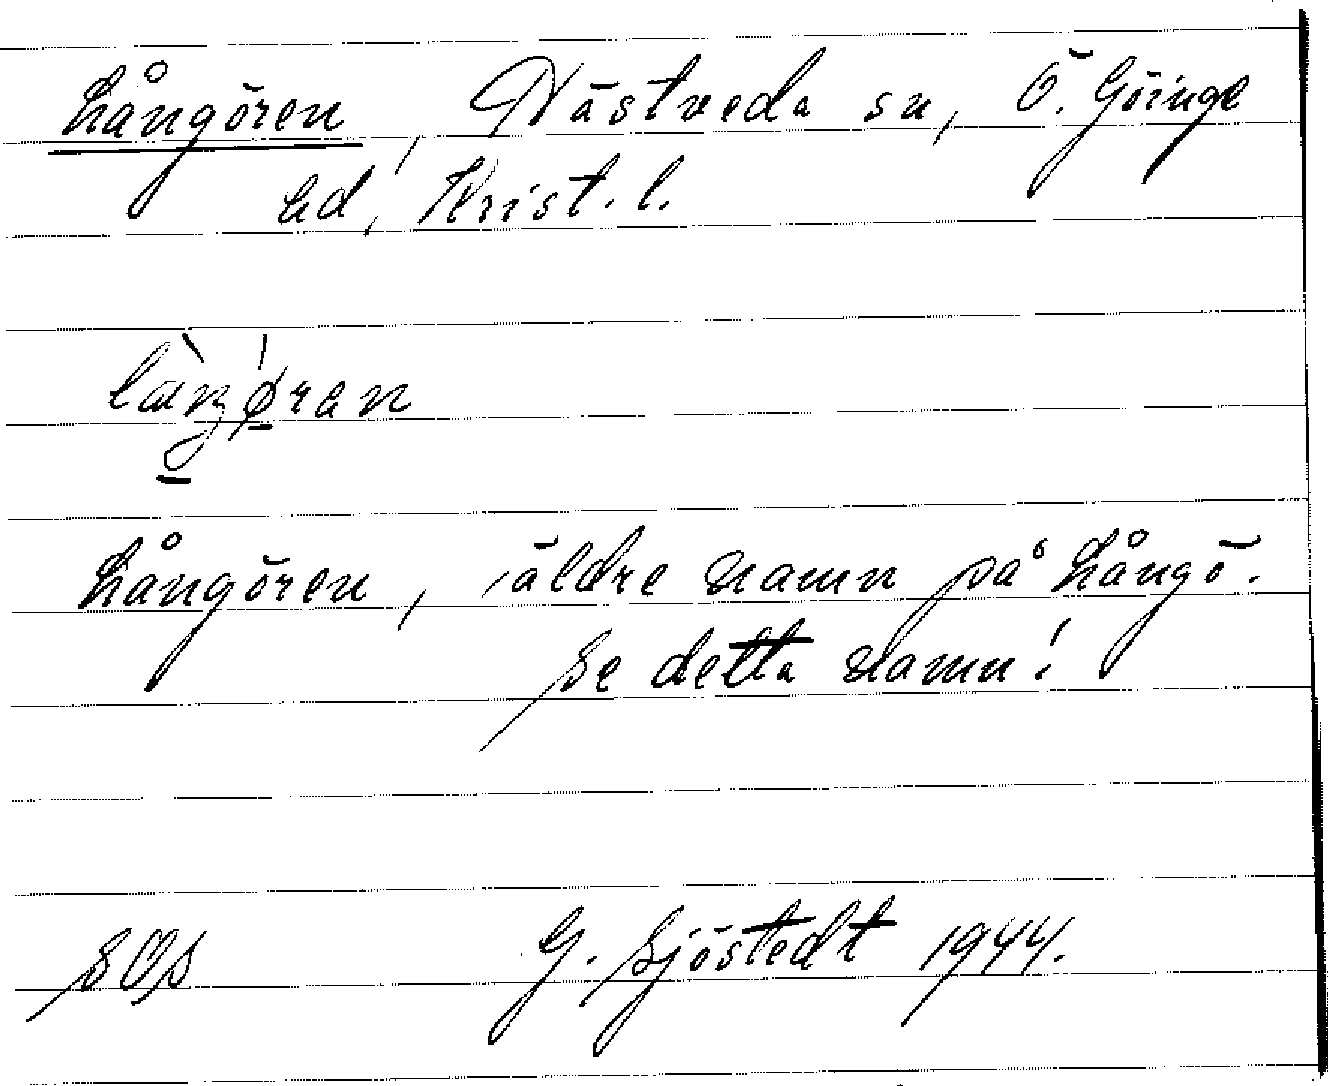 Långören, Nästveda sn, Ö. Göinge
hd, Krist. l.
Långören, äldre namn på Långö.
Se detta namn!
G. Sjöstedt 1944.